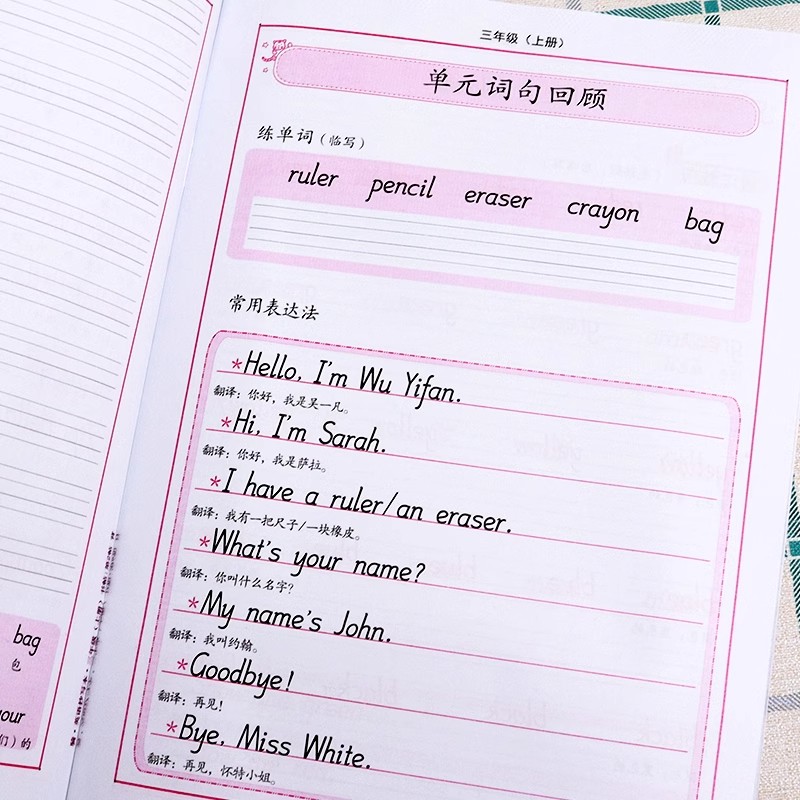 三年级（上册）
单元词句回顾
练单词（临写）
ruler pencil eraser crayon bag
常用表达法
*Hello, I'm Wu Yifan.
翻译：你好，我是吴一凡。
*Hi, I'm Sarah.
翻译：你好，我是萨拉。
*I have a ruler/an eraser.
翻译：我有一把尺子/一块橡皮。
*What's your name?
翻译：你叫什么名字？
*My name's John.
翻译：我叫约翰。
*Goodbye!
翻译：再见！
*Bye, Miss White.
翻译：再见，怀特小姐。
bag
包
our
们）的